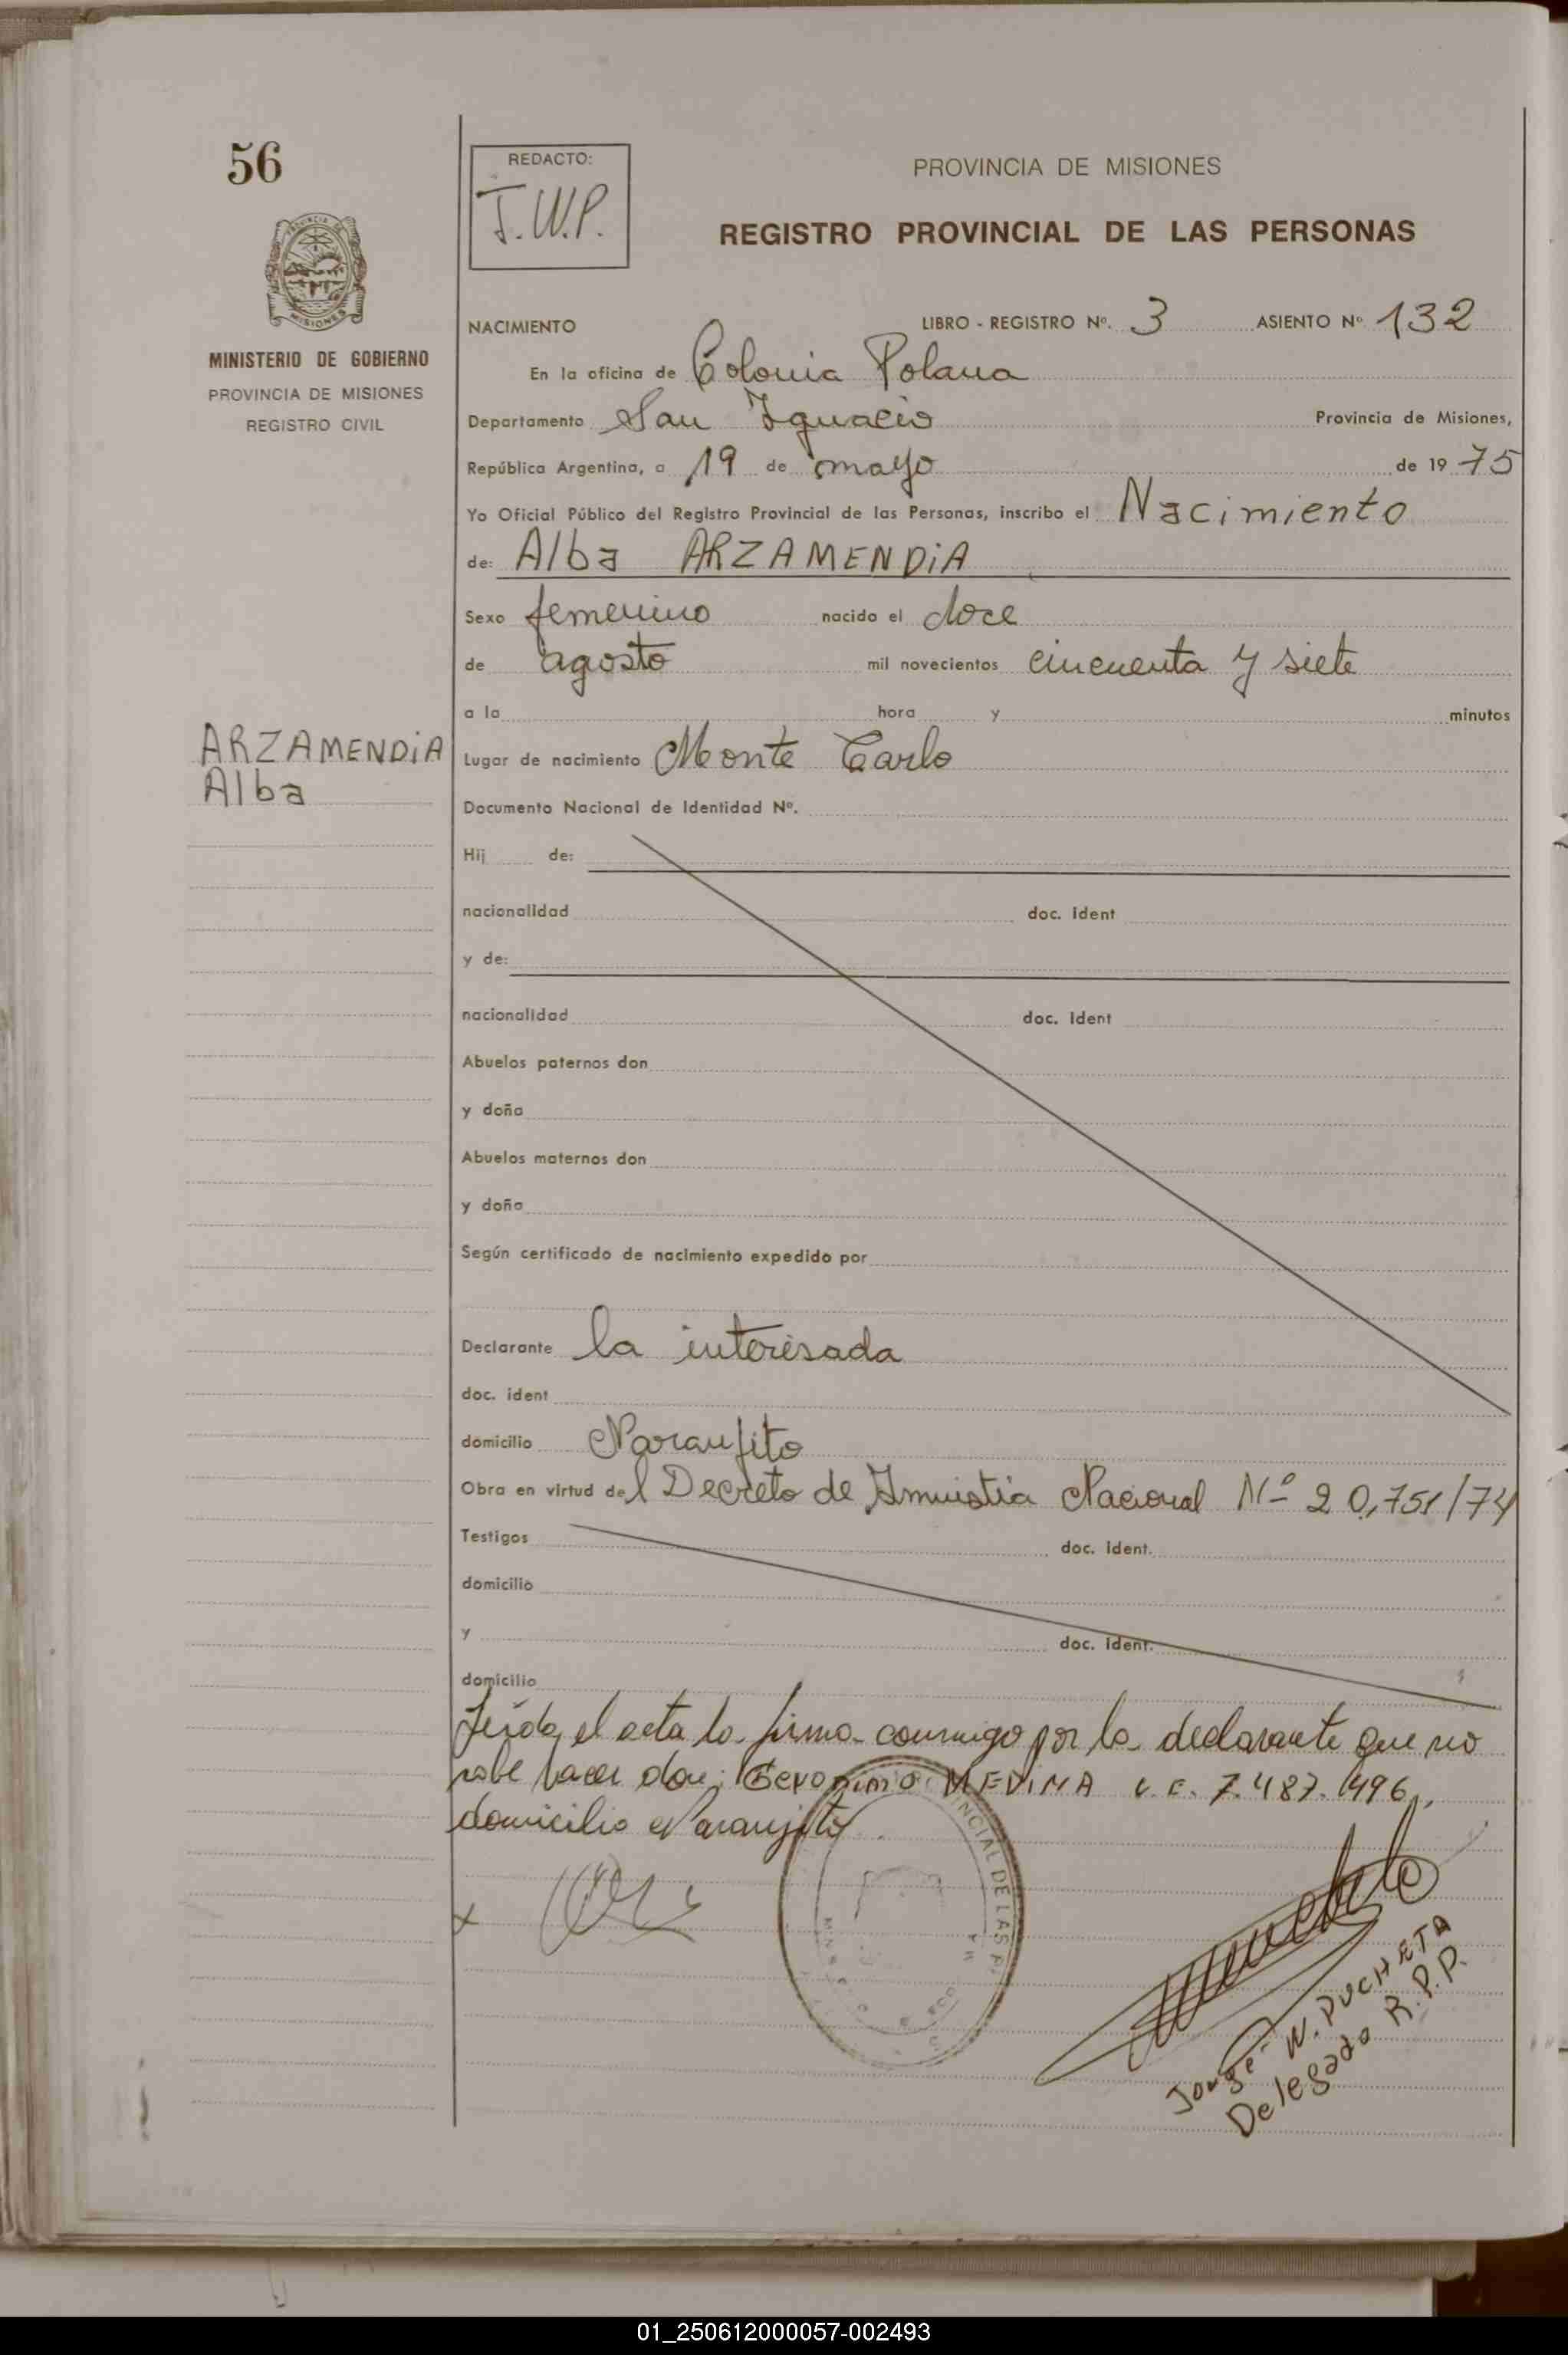 56
REDACTO:
J.W.P.
PROVINCIA DE MISIONES
REGISTRO PROVINCIAL DE LAS PERSONAS
MISIONES
MINISTERIO DE GOBIERNO
PROVINCIA DE MISIONES
REGISTRO CIVIL
NACIMIENTO LIBRO - REGISTRO Nº. 3 ASIENTO Nº 132
En la oficina de Colonia Polana
Departamento San Ignacio Provincia de Misiones,
República Argentina, a 19 de mayo de 1975
Yo Oficial Público del Registro Provincial de las Personas, inscribo el Nacimiento
de: Alba ARZAMENDiA
Sexo femenino nacido el doce
de agosto mil novecientos cincuenta y siete
a la hora y minutos
ARZAMENDiA
Alba
Lugar de nacimiento Monte Carlo
Documento Nacional de Identidad Nº.
Hij de:
nacionalidad doc. ident
y de:
nacionalidad doc. ident
Abuelos paternos don
y doña
Abuelos maternos don
y doña
Según certificado de nacimiento expedido por
Declarante la interesada
doc. ident
domicilio Naranjito
Obra en virtud del Decreto de Amnistia Nacional Nº 20,751/74
Testigos doc. ident.
domicilio
y doc. ident.
domicilio
Leida el acta la firma conmigo por la declarante que no
sabe hacer don: Geronimo MEDINA L.E. 7.487.496,
domicilio Naranjito
INCIAL DE LAS P
Jorge W. PUCHETA
Delegado R.P.P.
01_250612000057-002493